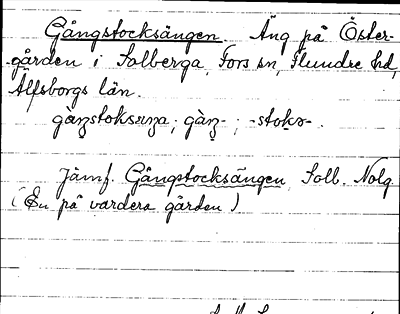 Gångstocksängen. Äng på Öster-
gården i Solberga, Fors sn, Flundre hd,
Älfsborgs län.
gàŋstoksæŋa; gàŋ- ; -stoks-
Jämf. Gångstocksängen, Solb. Nolg
(En på vardera gården)